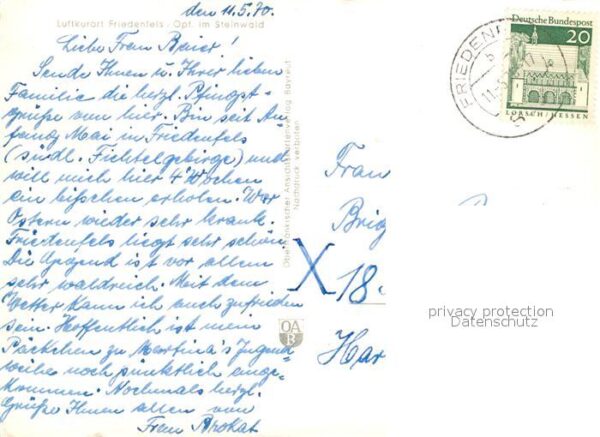 den 11.5.70.
Luftkurort Friedenfels, Opf. im Steinwald
Liebe Frau Beier!
Sende Ihnen u. Ihrer lieben
Familie die herzl. Pfingst-
grüße von hier. Bin seit An-
fang Mai in Friedenfels
(südl. Fichtelgebirge) und
will mich hier 4 Wochen
ein bißchen erholen. War
Ostern wieder sehr krank.
Friedenfels liegt sehr schön.
Die Gegend ist vor allem
sehr waldreich. Mit dem
Wetter kann ich auch zufrieden
sein. Hoffentlich ist mein
Päckchen zu Martina's Jugend-
weihe noch pünktlich einge-
kommen. Nochmals herzl.
Grüße Ihnen allen von
Frau Brokat
Oberfränkischer Ansichtskartenverlag Bayreuth
Nachdruck verboten
OA
B
Deutsche Bundespost
20
LORSCH/HESSEN
FRIEDENF
b
11.-5
Frau
Brig
X 18.
Har
privacy protection
Datenschutz